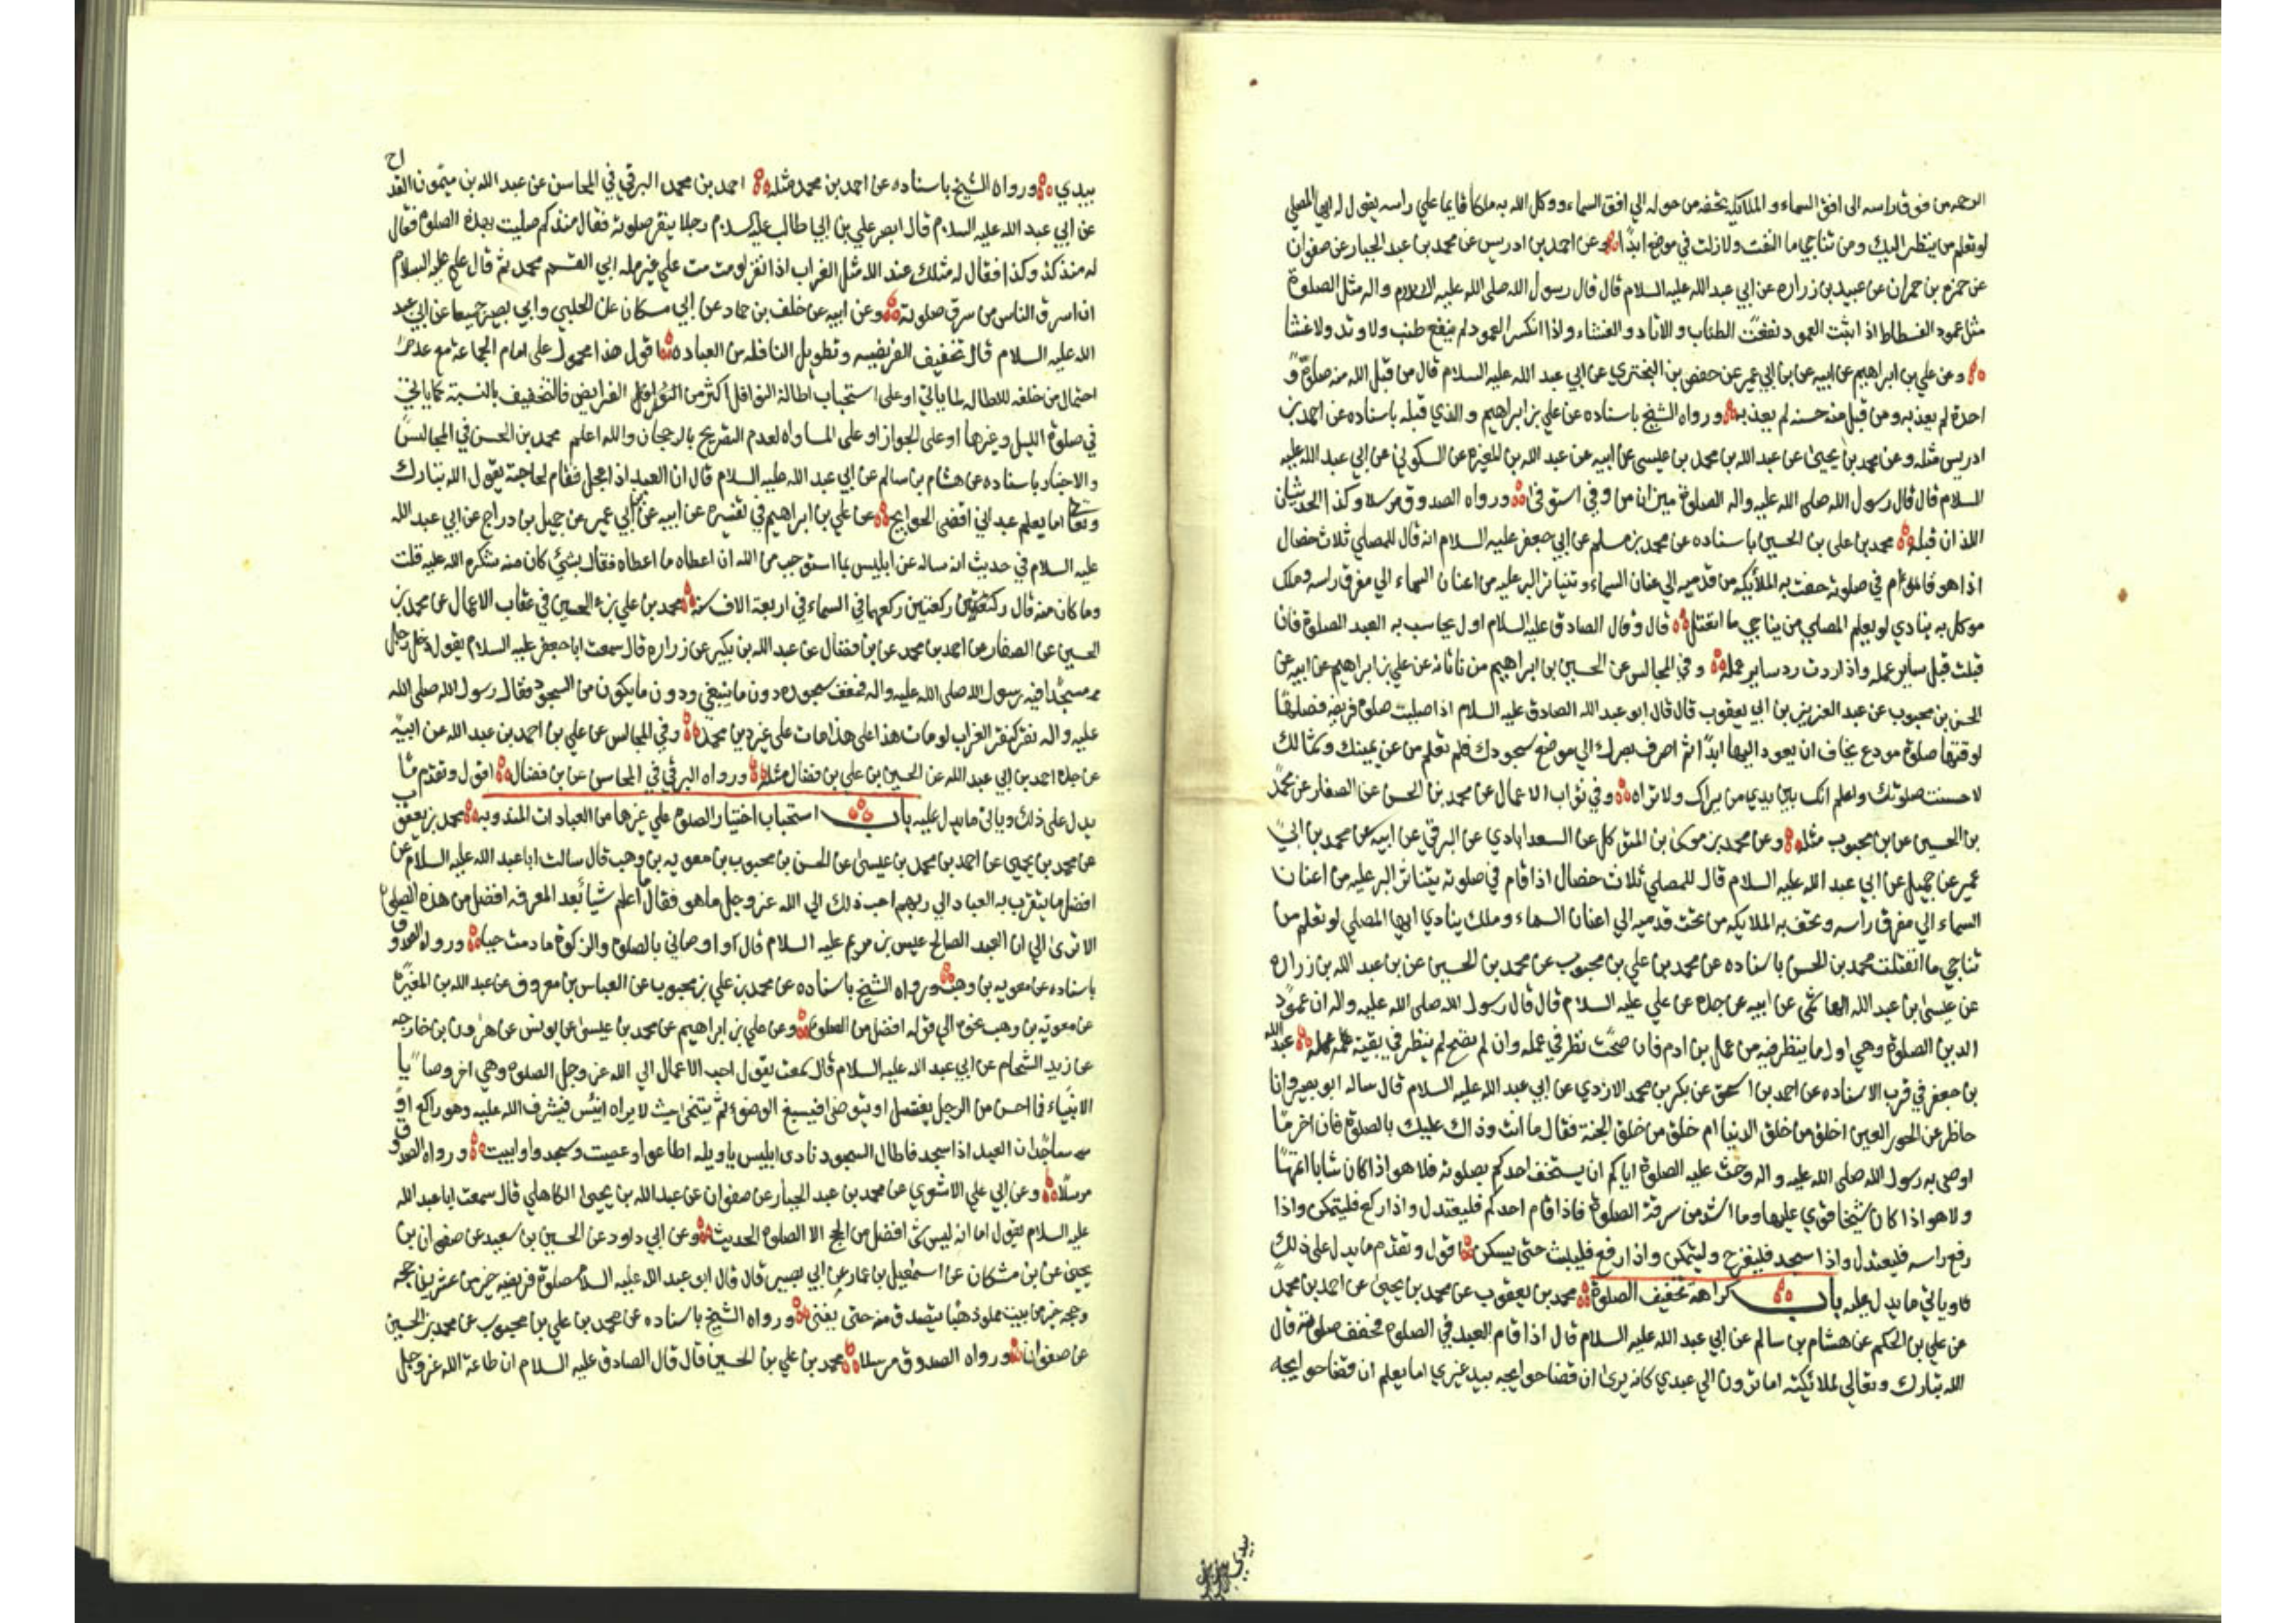 الرحمه من فوق راسه الى افق السماء و الملائكه تحفه من حوله الي افق السماء و وكل الله به ملكا قايما علي راسه يقول له ايها المصلي
لو تعلم من ينظر اليك ومن تناجي ما التفت ولا زلت في موضعك ابدًا وعن احمد بن ادريس عن محمد بن عبد الجبار عن صفوان
عن حمزه بن حمران عن عبيد بن زراره عن ابي عبد الله عليه السلام قال قال رسول الله صلى الله عليه واله مثل الصلوة
مثل عمود الفسطاط اذا ثبت العمود نفعت الطناب و الاوتاد و الغشاء و اذا انكسر العمود لم ينفع طنب ولا وتد ولا غشا
و عن علي بن ابراهيم عن ابيه عن ابن ابي عمير عن حفص بن البختري عن ابي عبد الله عليه السلام قال من قبل الله منه صلوة و
احدة لم يعذبه ومن قبل منه حسنه لم يعذبه و رواه الشيخ باسناده عن علي بن ابراهيم و الذي قبله باسناده عن احمد بن
ادريس مثله و عن محمد بن يحيى عن عبد الله بن محمد بن عيسى عن ابيه عن عبد الله بن المغيره عن السكوني عن ابي عبد الله عليه
السلام قال قال رسول الله صلى الله عليه واله الصلوة ميزان من وفى استوفى و رواه الصدوق مرسلا وكذا الحديثان
اللذان قبله محمد بن علي بن الحسين باسناده عن محمد بن مسلم عن ابي جعفر عليه السلام انه قال للمصلي ثلاث خصال
اذا هو قام في صلوته حفت به الملائكه من قدميه الي عنان السماء و تناثر البر عليه من اعنان السماء الي مفرق راسه وملك
موكل به ينادي لو يعلم المصلي من يناجي ما انفتل قال وقال الصادق عليه السلام اول ما يحاسب به العبد الصلوة فان
قبلت قبل ساير عمله واذا ردت رد ساير عمله و في المجالس عن الحسين بن ابراهيم بن ناتانه عن علي بن ابراهيم عن ابيه عن
الحسن بن محبوب عن عبد العزيز بن ابي يعفور قال قال ابو عبد الله الصادق عليه السلام اذا صليت صلوة فريضه فصلها
لوقتها صلوة مودع يخاف ان يعود اليها ابدًا ثم اصرف بصرك الي موضع سجودك فلو تعلم من عن يمينك وشمالك
لاحسنت صلوتك واعلم انك بين يدي من يراك ولا تراه وفي ثواب الاعمال عن محمد بن الحسن عن الصفار عن محمد
بن الحسين عن ابن محبوب مثله وعن محمد بن موسى بن المتوكل عن السعد ابادي عن البرقي عن ابيه عن محمد بن ابي
عمير عن جميل عن ابي عبد الله عليه السلام قال للمصلي ثلاث خصال اذا قام في صلوته يتناثر البر عليه من اعنان
السماء الي مفرق راسه وتحف به الملايكه من تحت قدميه الي اعنان السماء وملك ينادي ايها المصلي لو تعلم من
تناجي ما انفتلت محمد بن الحسن باسناده عن محمد بن علي بن محبوب عن محمد بن الحسين عن بن عبد الله بن زراره
عن عيسى بن عبد الله الهاشمي عن ابيه عن جده عن علي عليه السلام قال قال رسول الله صلى الله عليه واله ان عمود
الدين الصلوة وهي اول ما ينظر فيه من عمل بن ادم فان صحت نظر في عمله وان لم تصح لم ينظر في بقية عمله عبد الله
بن جعفر في قرب الاسناده عن احمد بن اسحق عن بكر بن محمد الازدي عن ابي عبد الله عليه السلام قال ساله ابو بصير وانا
حاظر عن الحور العين اخلق من خلق الدنيا ام خلق من خلق الجنة فقال ما انت وذاك عليك بالصلوة فان اخر ما
اوصى به رسول الله صلى الله عليه واله وحث عليه الصلوة اياكم ان يستخف احدكم بصلوته فلا هو اذا كان شابا اتمها
ولا هو اذا كان شيخا قوي عليها وما اشد من سرقة الصلوة فاذا قام احدكم فليعتدل و اذا ركع فليتمكن واذا
رفع راسه فليعتدل واذا سجد فليفرج وليتمكن واذا رفع فليلبث حتى يسكن اقول وتقدم ما يدل على ذلك
وياتي ما يدل عليه باب كراهة تخفيف الصلوة محمد بن يعقوب عن محمد بن يحيى عن احمد بن محمد
عن علي بن الحكم عن هشام بن سالم عن ابي عبد الله عليه السلام قال اذا قام العبد في الصلوة فخفف صلوته قال
الله تبارك وتعالي لملائكته اما ترون الي عبدي كانه يرى ان قضا حوايجه بيد غيري اما يعلم ان قضا حوايجه
بيدي
بيدي و رواه الشيخ باسناده عن احمد بن محمد مثله احمد بن محمد البرقي في المحاسن عن عبد الله بن ميمون القداح
عن ابي عبد الله عليه السلام قال ابصر علي بن ابي طالب عليه السلام رجلا ينقر صلوته فقال منذ كم صليت بهذه الصلوة فقال
له منذ كذا وكذا فقال له مثلك عند الله مثل الغراب اذا نقر لو مت مت علي غير ملة ابي القسم محمد ثم قال علي عليه السلام
ان اسرق الناس من سرق صلوته وعن ابيه عن خلف بن حماد عن ابن مسكان عن الحلبي و ابي بصير جميعا عن ابي عبد
الله عليه السلام قال تخفيف الفريضه و تطويل النافله من العباده اقول هذا محمول على امام الجماعة مع عدم
احتمال من خلفه للاطاله لما ياتي او على استحباب اطالة النوافل اكثر من الفرايض فالتخفيف بالنسبة كما ياتي
في صلوة الليل وغيرها او على الجواز او على المساواة لعدم التصريح بالرجحان والله اعلم محمد بن الحسن في المجالس
والاخبار باسناده عن هشام بن سالم عن ابي عبد الله عليه السلام قال ان العبد اذا عجل فقام لحاجته يقول الله تبارك
وتعالى اما يعلم عبدي اني اقضي الحوايج عن علي بن ابراهيم في تفسيره عن ابيه عن ابن ابي عمير عن جميل بن دراج عن ابي عبد الله
عليه السلام في حديث انه ساله عن ابليس بما استوجب من الله ان اعطاه ما اعطاه فقال بشئ كان منه شكره الله عليه قلت
وما كان منه قال ركعتين ركعهما في السماء في اربعة الاف سنة محمد بن علي بن الحسين في عقاب الاعمال عن محمد بن
الحسن عن الصفار عن احمد بن محمد عن ابن فضال عن عبد الله بن بكير عن زراره قال سمعت ابا جعفر عليه السلام يقول دخل رجل
مسجدًا فيه رسول الله صلى الله عليه واله فخفف سجوده دون ما ينبغي ودون ما يكون من السجود فقال رسول الله صلى الله
عليه واله نقر كنقر الغراب لو مات هذا على هذا مات على غير دين محمد وفي المجالس عن علي بن احمد بن عبد الله عن ابيه
عن جده احمد بن ابي عبد الله عن الحسن بن علي بن فضال مثله و رواه البرقي في المحاسن عن بن فضال اقول وتقدم ما
يدل على ذلك وياتي ما يدل عليه باب استحباب اختيار الصلوة علي غيرها من العبادات المندوبه محمد بن يعقوب
عن محمد بن يحيي عن احمد بن محمد بن عيسى عن الحسن بن محبوب بن معويه بن وهب قال سالت ابا عبد الله عليه السلام عن
افضل ما يتقرب به العباد الي ربهم احب ذلك الي الله عز وجل ما هو فقال ما اعلم شيا بعد المعرفه افضل من هذه الصلوة
الا ترى الي ان العبد الصالح عيسى بن مريم عليه السلام قال واوصاني بالصلوة والزكوة ما دمت حيا و رواه الصدوق
باسناده عن معويه بن وهب ورواه الشيخ باسناده عن محمد بن علي بن محبوب عن العباس بن معروف عن عبد الله بن المغيره
عن معويه بن وهب نحوه الي قوله افضل من الصلوة وعن علي بن ابراهيم عن محمد بن عيسى عن يونس عن هرون بن خارجه
عن زيد الشحام عن ابي عبد الله عليه السلام قال سمعته يقول احب الاعمال الي الله عز وجل الصلوة وهي اخر وصايا
الانبياء فما احسن من الرجل يغتسل او يتوضا فيسبغ الوضوء ثم يتنحى حيث لا يراه انيس فيشرف الله عليه وهو راكع او
ساجد ان العبد اذا سجد فاطال السجود نادى ابليس يا ويله اطاعوا وعصيت وسجدوا وابيت و رواه الصدوق
مرسلًا وعن ابي علي الاشعري عن محمد بن عبد الجبار عن صفوان عن عبد الله بن يحيى الكاهلي قال سمعت ابا عبد الله
عليه السلام يقول اما انه ليس شئ افضل من الحج الا الصلوة الحديث وعن ابي داود عن الحسين بن سعيد عن صفوان بن
يحيى عن بن مسكان عن اسمعيل بن عمار عن ابي بصير قال قال ابو عبد الله عليه السلام صلوة فريضه خير من عشرين حجه
وحجه خير من بيت مملو ذهبًا يتصدق منه حتى يفنى و رواه الشيخ باسناده عن محمد بن علي بن محبوب عن محمد بن الحسين
عن صفوان ورواه الصدوق مرسلا محمد بن علي بن الحسين قال قال الصادق عليه السلام ان طاعة الله عز وجل